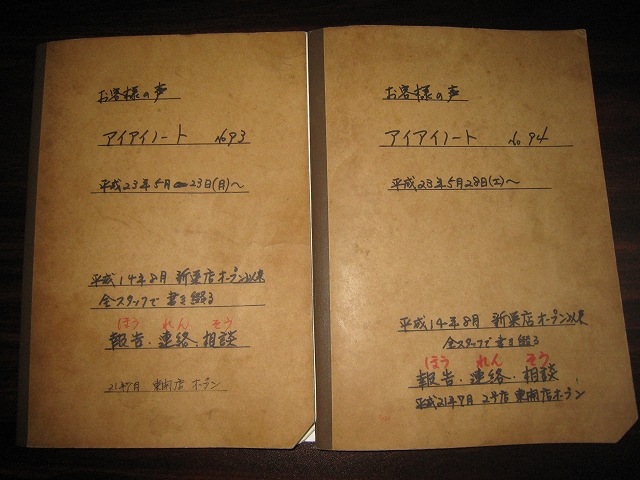 お客様の声
アイアイノート No93
平成23年5月23日(月)～
平成14年8月 新栗店オープン以来
全スタッフで書き綴る
ほう れん そう
報告、連絡、相談
21年7月 東開店オープン
お客様の声
アイアイノート No94
平成23年5月28日(土)～
平成14年8月 新栗店オープン以来
全スタッフで書き綴る
ほう れん そう
報告、連絡、相談
平成21年7月 2号店 東開店オープン